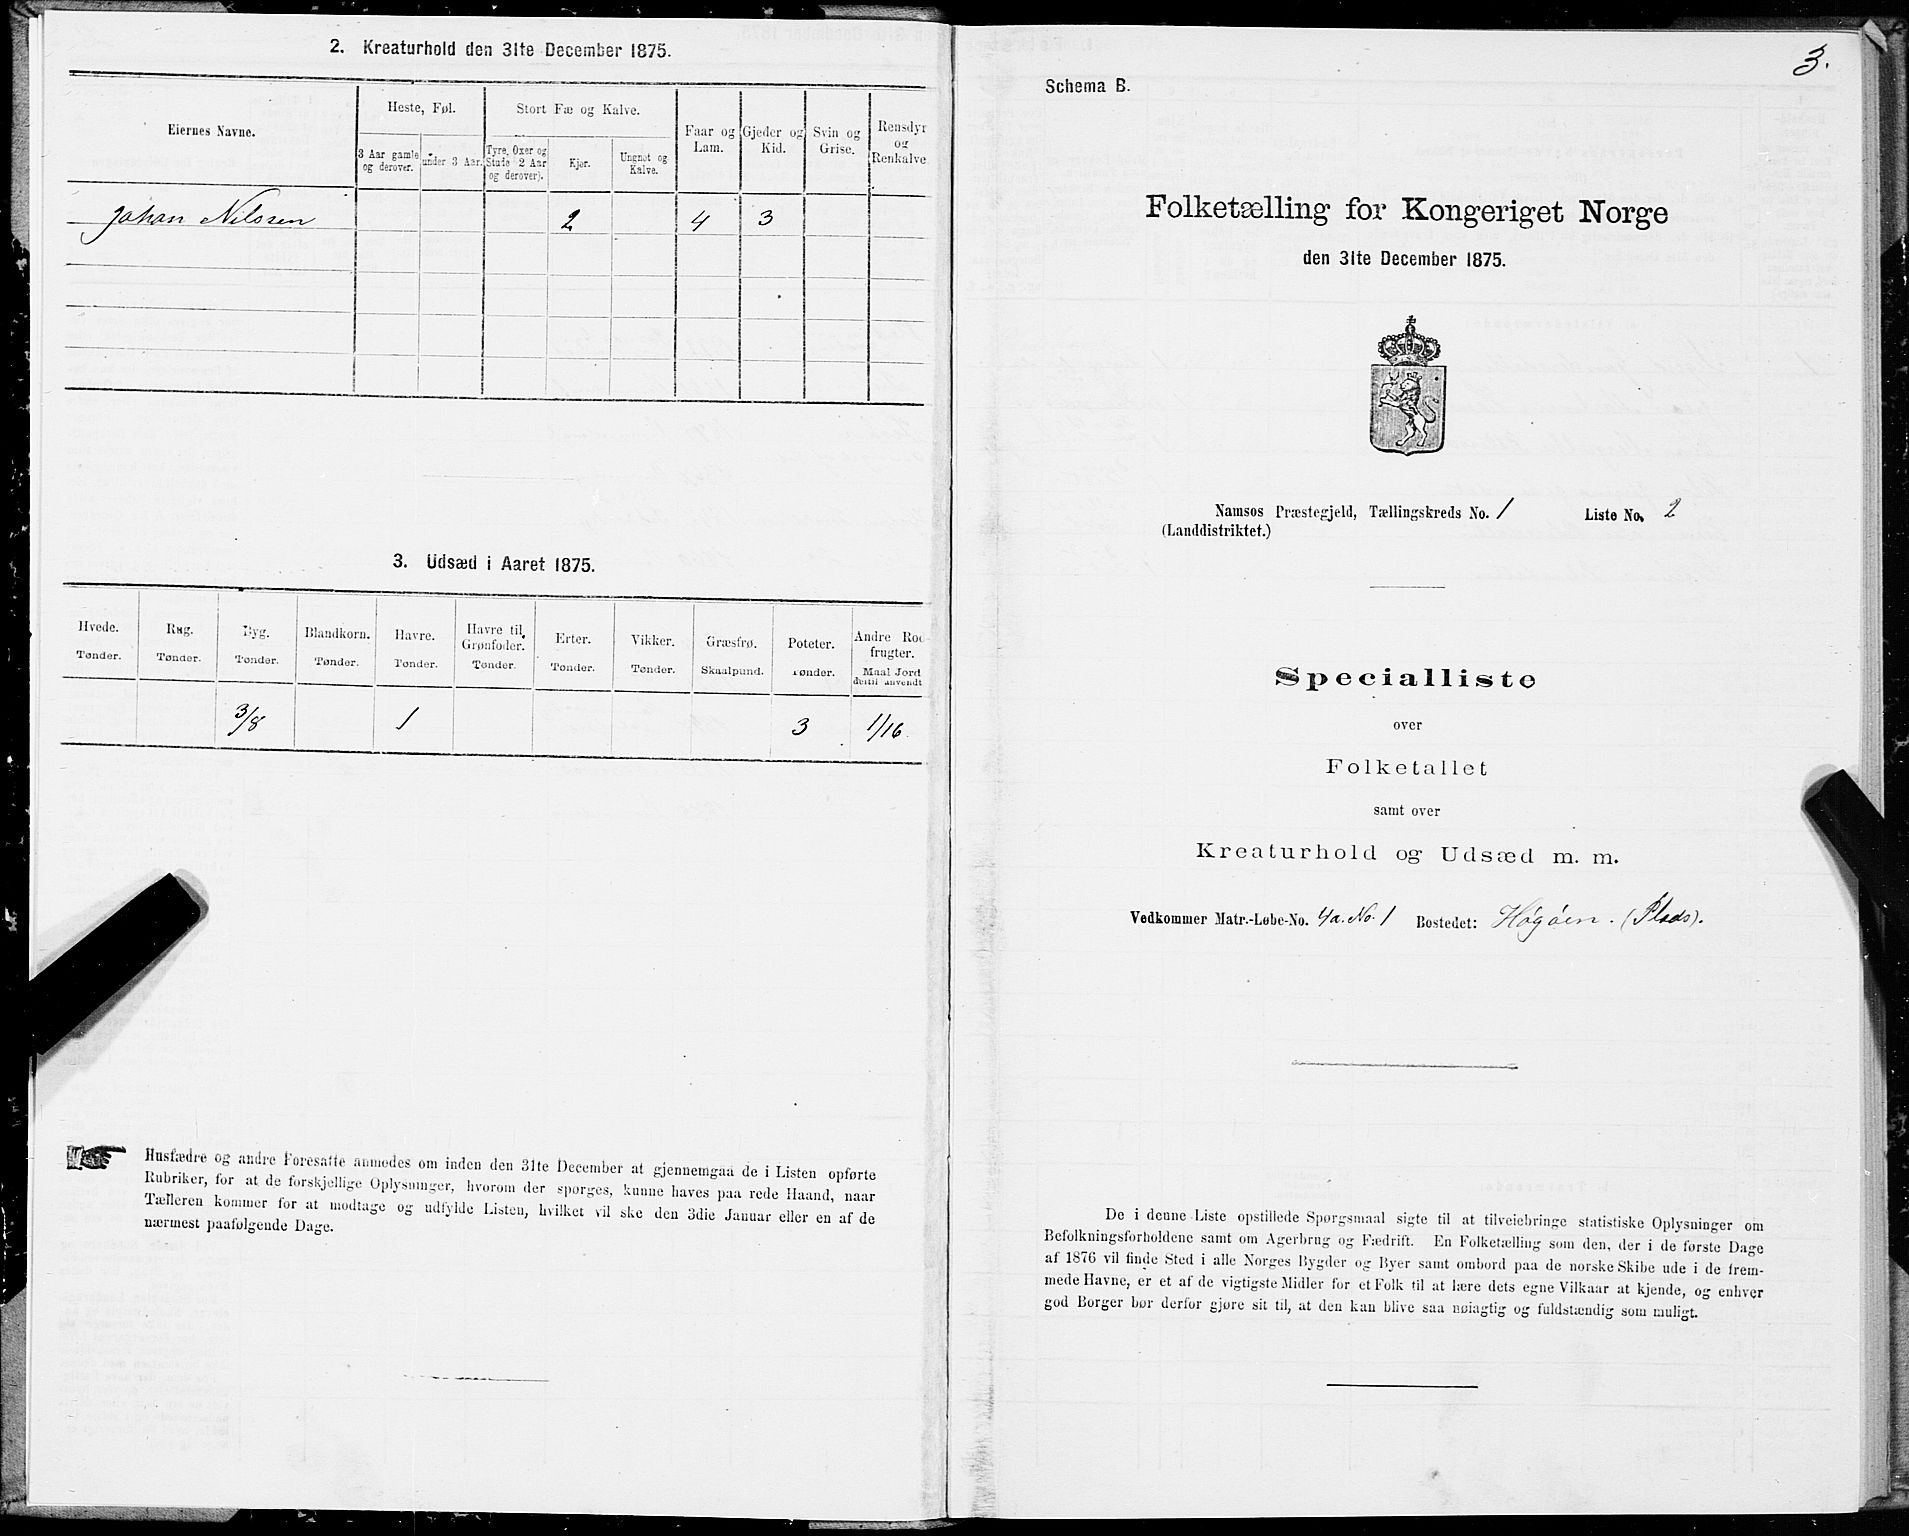 2. Kreaturhold den 31te December 1875.
Eiernes Navne.
Heste, Føl.
Stort Fæ og Kalve.
Faar og Lam.
Gjeder og Kid.
Svin og Grise.
Rensdyr og Renkalve
3 Aar gamle og derover.
under 3 Aar.
Tyre, Oxer og Stude 2 Aar og derover).
Kjør.
Ungnøt og Kalve.
Johan Nilssen 2 4 3
3. Udsæd i Aaret 1875.
Hvede. Rug. Byg. Blandkorn. Havre. Havre til Grønfoder. Erter. Vikker. Græsfrø. Poteter. Andre Rodfrugter.
Tønder. Tønder. Tønder. Tønder. Tønder. Tønder. Tønder. Tønder. Skaalpund. Tønder. Maal Jord dertil anvendt
3/8 1 3 1/16
Husfædre og andre Foresatte anmodes om inden den 31te December at gjennemgaa de i Listen opførte
Rubriker, for at de forskjellige Oplysninger, hvorom der spørges, kunne haves paa rede Haand, naar
Tælleren kommer for at modtage og udfylde Listen, hvilket vil ske den 3die Januar eller en af de
nærmest paafølgende Dage.
3.
Schema B.
Folketælling for Kongeriget Norge
den 31te December 1875.
Namsos Præstegjeld, Tællingskreds No. 1 Liste No. 2
(Landdistriktet.)
Specialliste
over
Folketallet
samt over
Kreaturhold og Udsæd m. m.
Vedkommer Matr.-Løbe-No. 4a. No. 1 Bostedet: Høgöen. (Plads).
De i denne Liste opstillede Spørgsmaal sigte til at tilveiebringe statistiske Oplysninger om
Befolkningsforholdene samt om Agerbrug og Fædrift. En Folketælling som den, der i de første Dage
af 1876 vil finde Sted i alle Norges Bygder og Byer samt ombord paa de norske Skibe ude i de frem-
mede Havne, er et af de vigtigste Midler for et Folk til at lære dets egne Vilkaar at kjende, og enhver
god Borger bør derfor gjøre sit til, at den kan blive saa nøiagtig og fuldstændig som muligt.